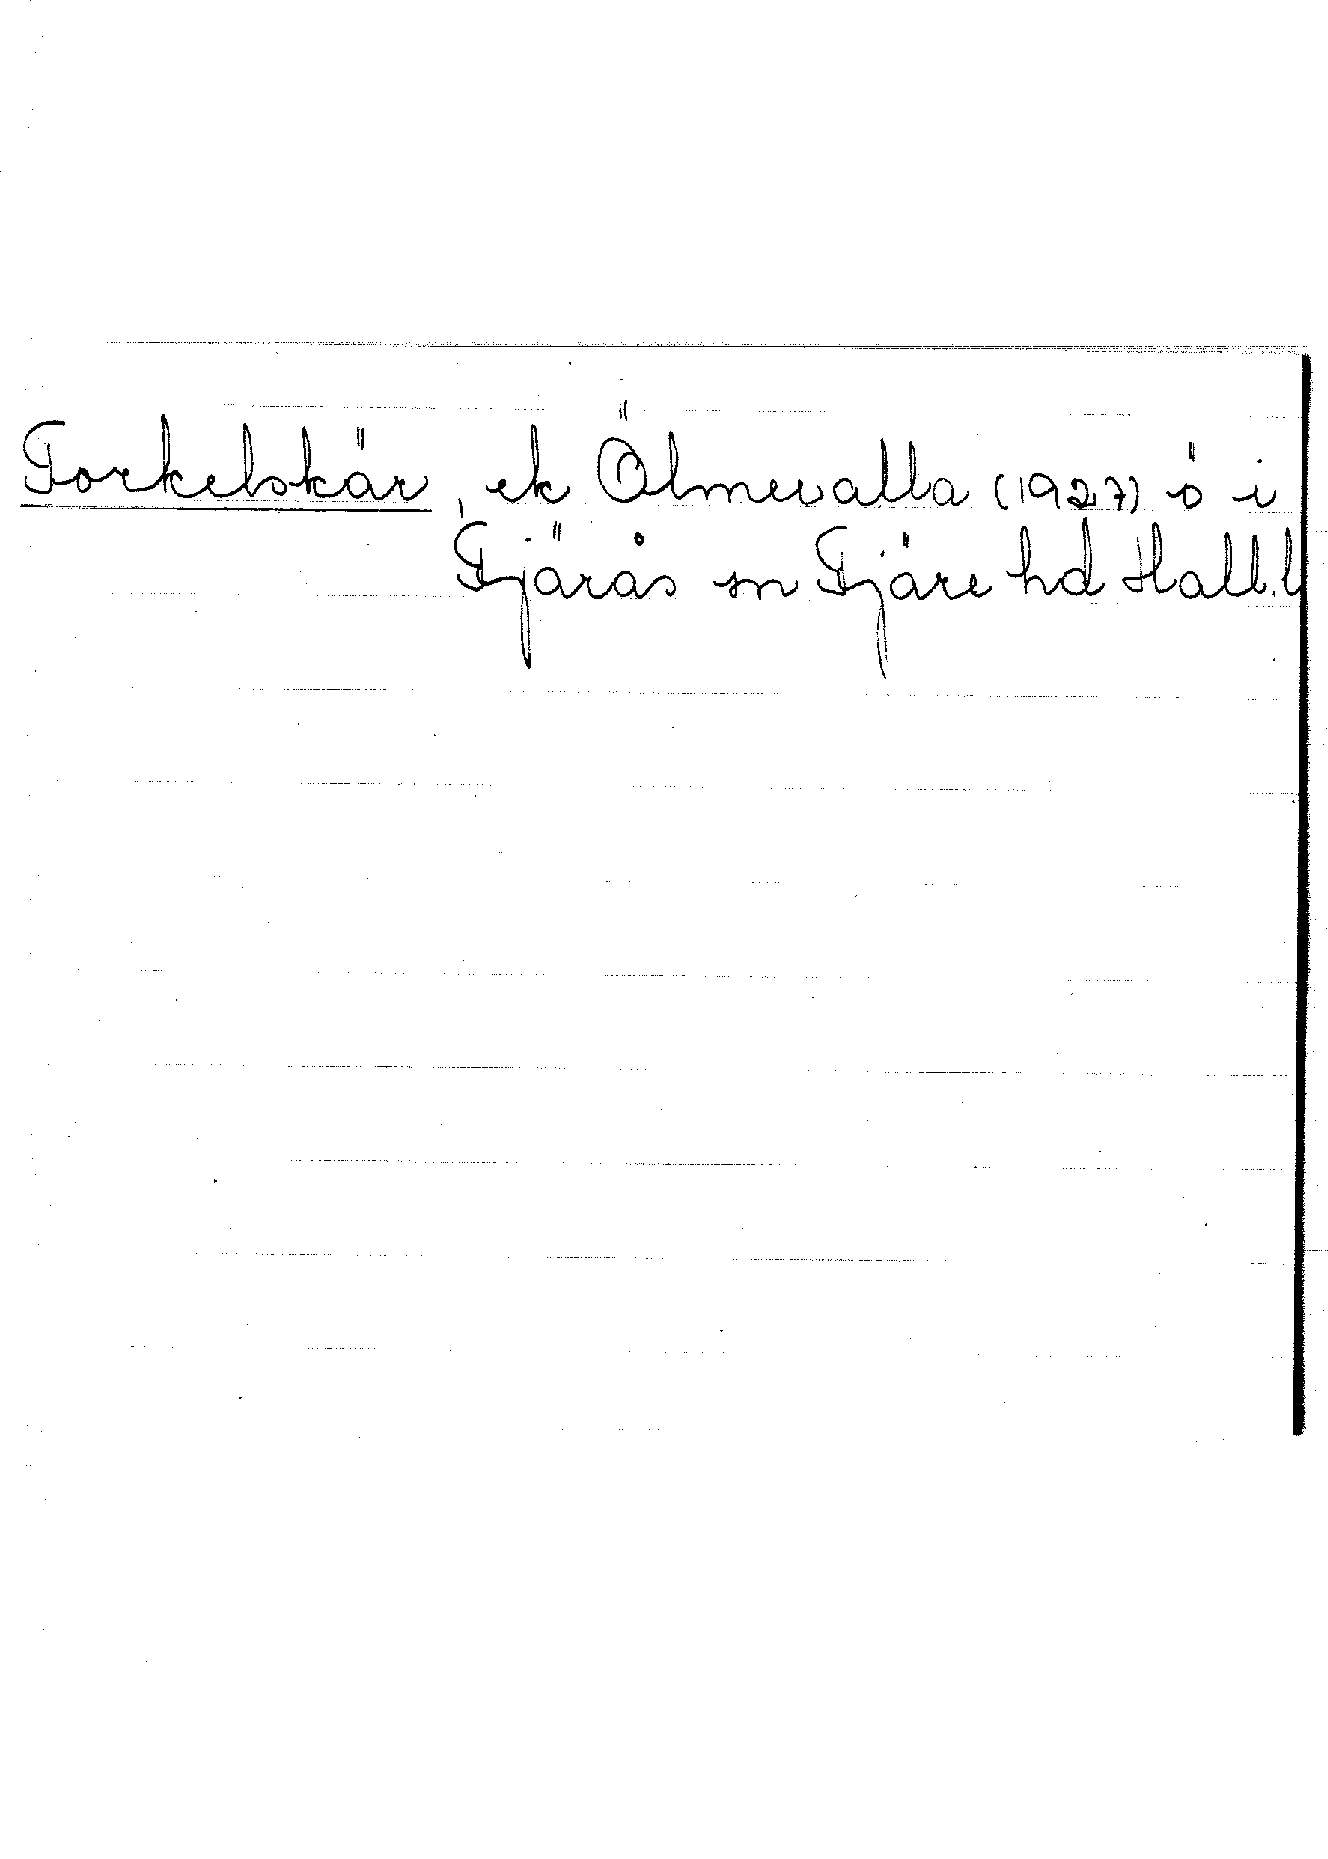 Torkelskär, ek Ölmevalla (1927) ö i
Fjärås sn Fjäre hd Hall.l